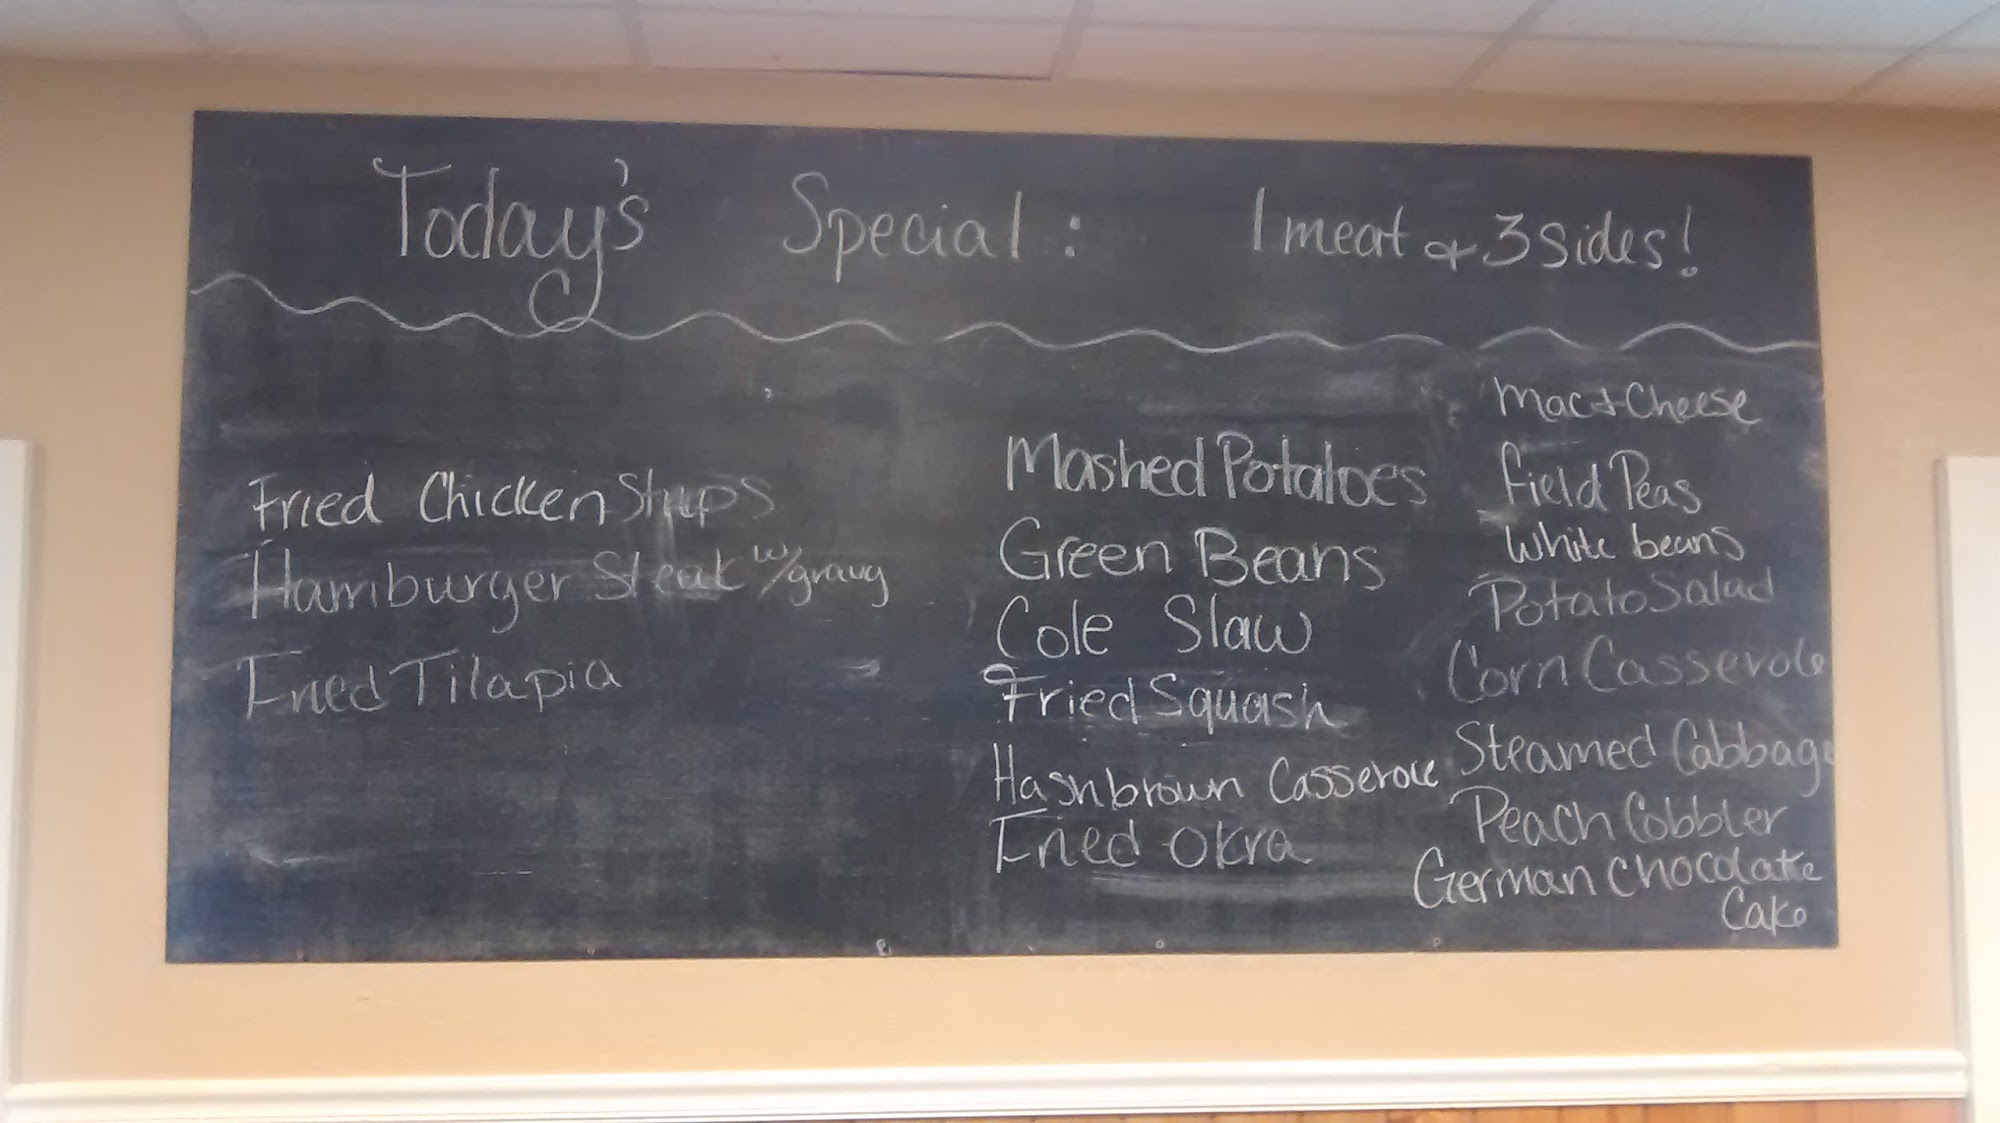 Today's Special: 1 meat & 3 sides!
Fried Chicken Strips
Hamburger Steak w/gravy
Fried Tilapia
Mashed Potatoes
Green Beans
Cole Slaw
Fried Squash
Hashbrown Casserole
Fried Okra
Mac + Cheese
Field Peas
White beans
Potato Salad
Corn Casserole
Steamed Cabbage
Peach Cobbler
German Chocolate
Cake